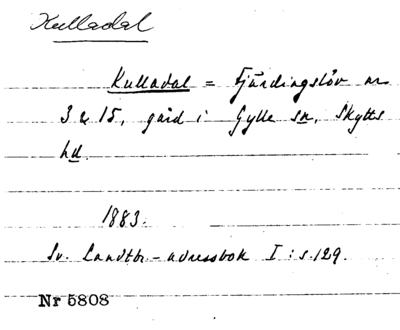 Kulladal
Kulladal = Fjärdingslöv nr
3 & 15, gård i Gylle sn, Skytts
hd.
1883.
Sv. Landtbr.-adressbok I: s. 129.
Nr 5808